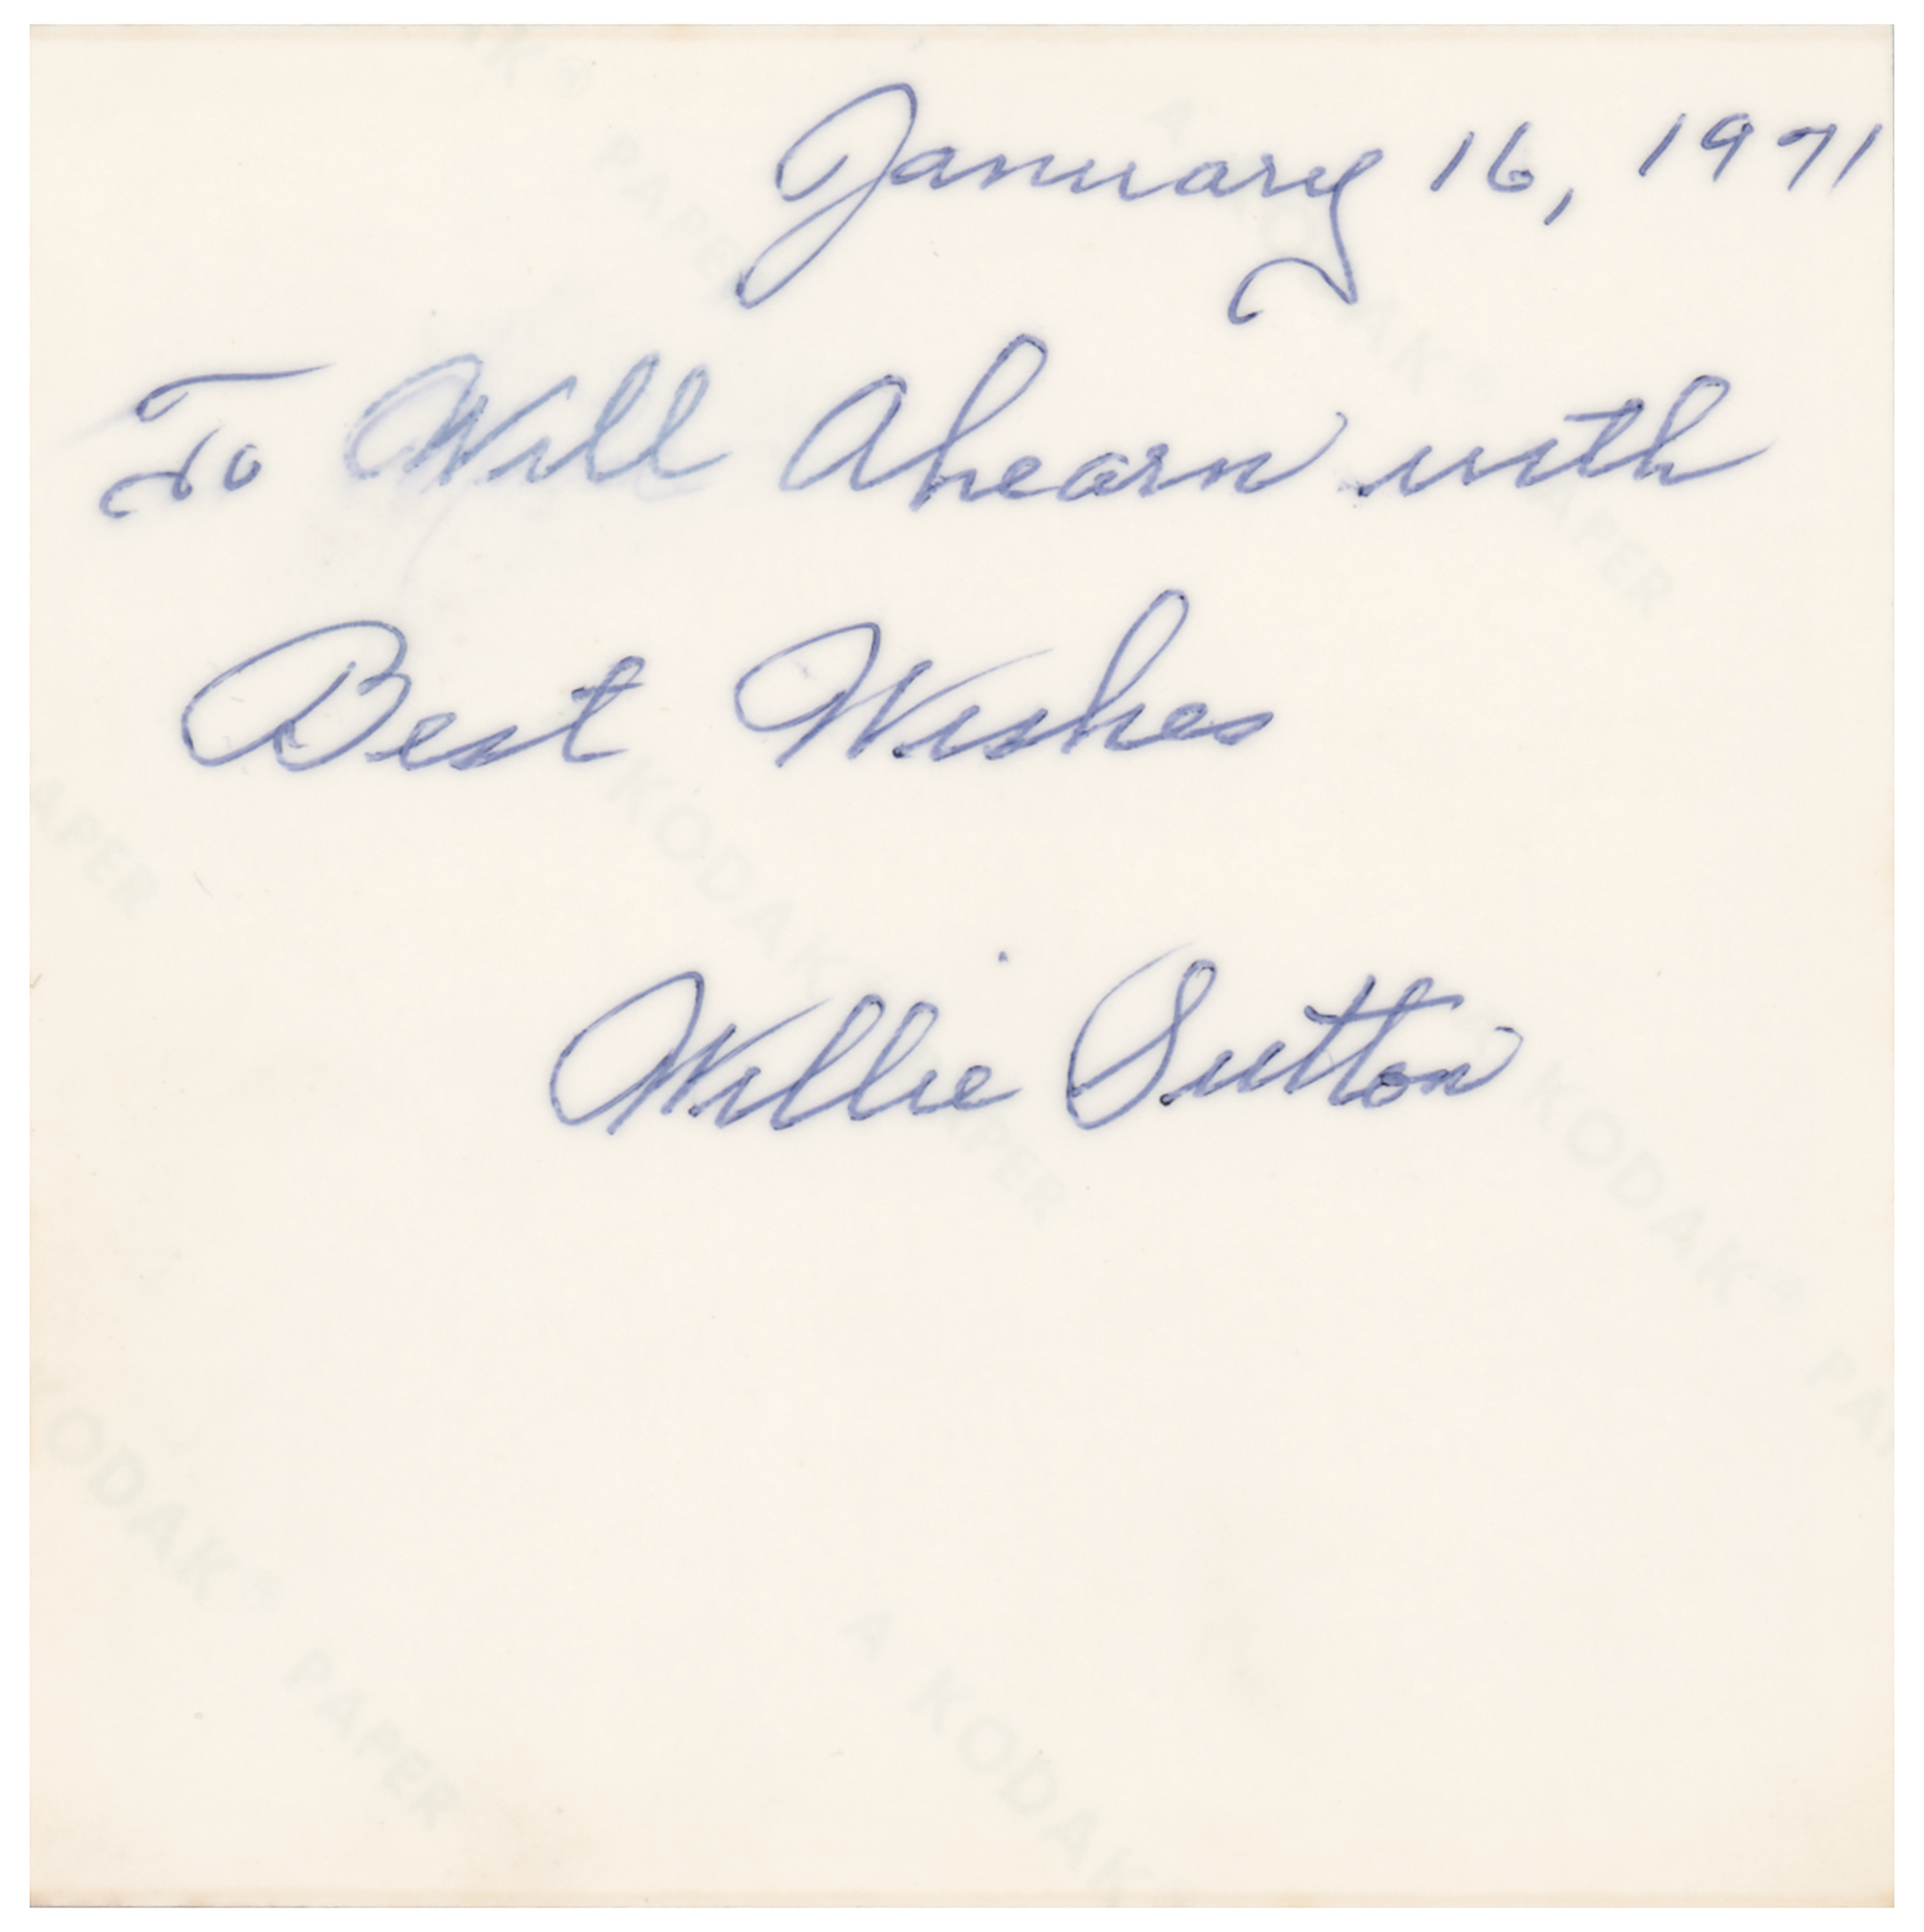 January 16, 1971
To Will Ahearn with
Best Wishes
Willie Sutton
K® PAPER
A KODAK® PAPER
APER
KODAK PAPER
KODAK® PA
ODAK® PAPER
A KODAK